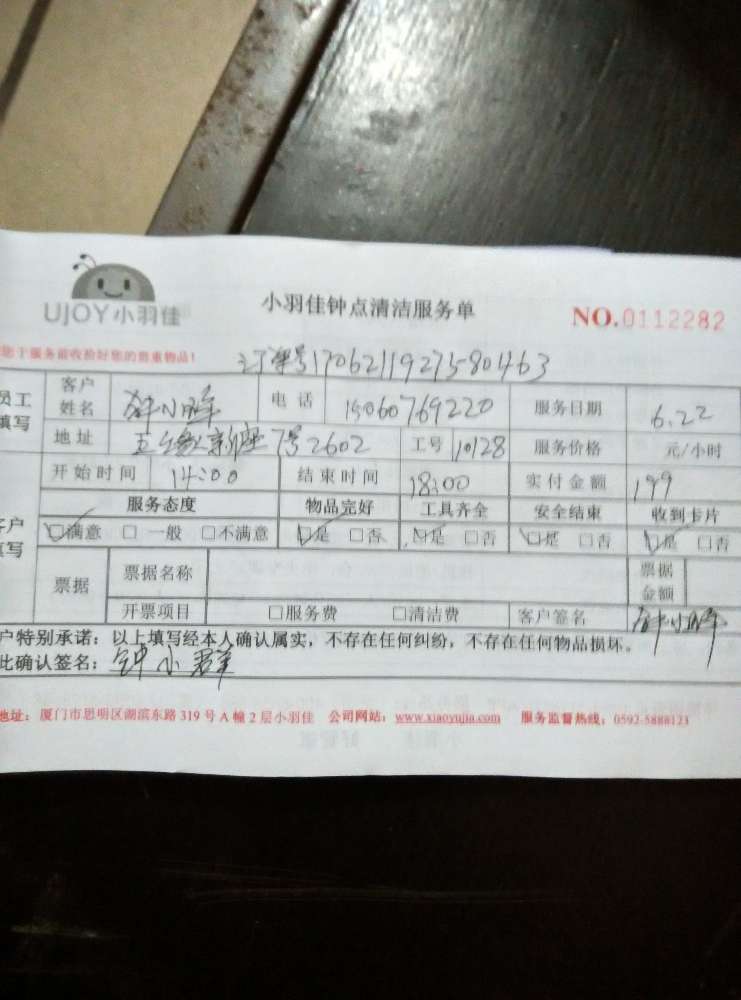 UJOY小羽佳
小羽佳钟点清洁服务单
NO.0112282
您于服务前收拾好您的贵重物品!
订单号1706211927580463
员工填写
客户姓名 钟小群 电话 15060769220 服务日期 6.22
地址 五缘新座7号2602 工号 10128 服务价格 元/小时
开始时间 14:00 结束时间 18:00 实付金额 199
客户填写
服务态度 物品完好 工具齐全 安全结束 收到卡片
☑满意 □一般 □不满意 ☑是 □否 ☑是 □否 ☑是 □否 ☑是 □否
票据 票据名称 票据金额
开票项目 □服务费 □清洁费 客户签名 钟小群
户特别承诺:以上填写经本人确认属实,不存在任何纠纷,不存在任何物品损坏。
此确认签名:钟小群
地址:厦门市思明区湖滨东路319号A幢2层小羽佳 公司网站:www.xiaoyujia.com 服务监督热线:0592-5888123